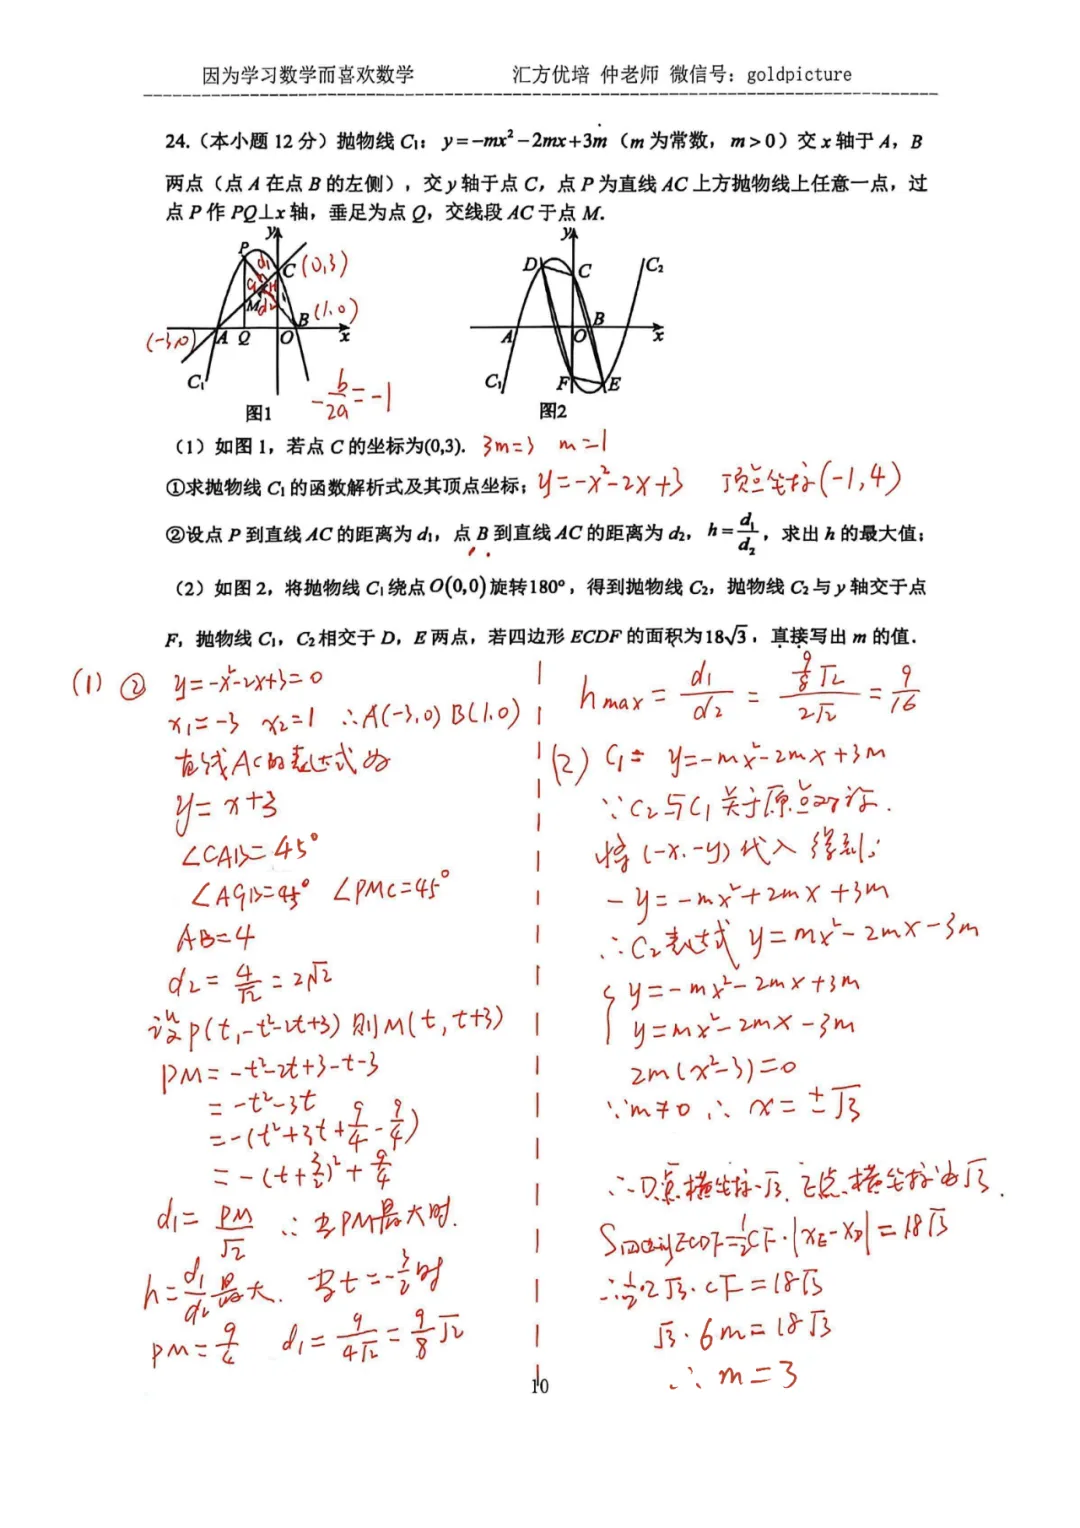 因为学习数学而喜欢数学 汇方优培 仲老师 微信号：goldpicture
24.（本小题 12 分）抛物线 C₁：y=-mx²-2mx+3m（m 为常数，m>0）交 x 轴于 A，B
两点（点 A 在点 B 的左侧），交 y 轴于点 C，点 P 为直线 AC 上方抛物线上任意一点，过
点 P 作 PQ⊥x 轴，垂足为点 Q，交线段 AC 于点 M.
y P d₁ C (0,3) M d₂ B (1,0) (-3,0) A Q O x C₁
-b/2a=-1
图1
y D C C₂ A O B x C₁ F E
图2
（1）如图 1，若点 C 的坐标为(0,3). 3m=3 m=1
①求抛物线 C₁的函数解析式及其顶点坐标； y=-x²-2x+3 顶点坐标(-1,4)
②设点 P 到直线 AC 的距离为 d₁，点 B 到直线 AC 的距离为 d₂，h=d₁/d₂，求出 h 的最大值；
（2）如图 2，将抛物线 C₁绕点 O(0,0)旋转180°，得到抛物线 C₂，抛物线 C₂与 y 轴交于点
F，抛物线 C₁，C₂相交于 D，E 两点，若四边形 ECDF 的面积为18√3，直接写出 m 的值.
(1) ② y=-x²-2x+3=0
x₁=-3 x₂=1 ∴A(-3,0) B(1,0)
直线AC的表达式为
y=x+3
∠CAB=45°
∠AQB=45° ∠PMC=45°
AB=4
d₂=4/√2=2√2
设P(t,-t²-2t+3) 则M(t,t+3)
PM=-t²-2t+3-t-3
=-t²-3t
=-(t²+3t+9/4-9/4)
=-(t+3/2)²+9/4
d₁=PM/√2 ∴当PM最大时.
h=d₁/d₂最大. 当t=-3/2时
PM=9/4 d₁=9/4√2=9/8√2
h max=d₁/d₂=9/8√2/2√2=9/16
(2) C₁= y=-mx²-2mx+3m
∵C₂与C₁关于原点对称.
将(-x,-y)代入得到:
-y=-mx²+2mx+3m
∴C₂表达式 y=mx²-2mx-3m
{ y=-mx²-2mx+3m
y=mx²-2mx-3m
2m(x²-3)=0
∵m≠0 ∴x=±√3
∴D点横坐标-√3, E点横坐标为√3.
S四边形ECDF=1/2CF·|xE-xD|=18√3
∴1/2·2√3·CF=18√3
√3·6m=18√3
∴m=3
10